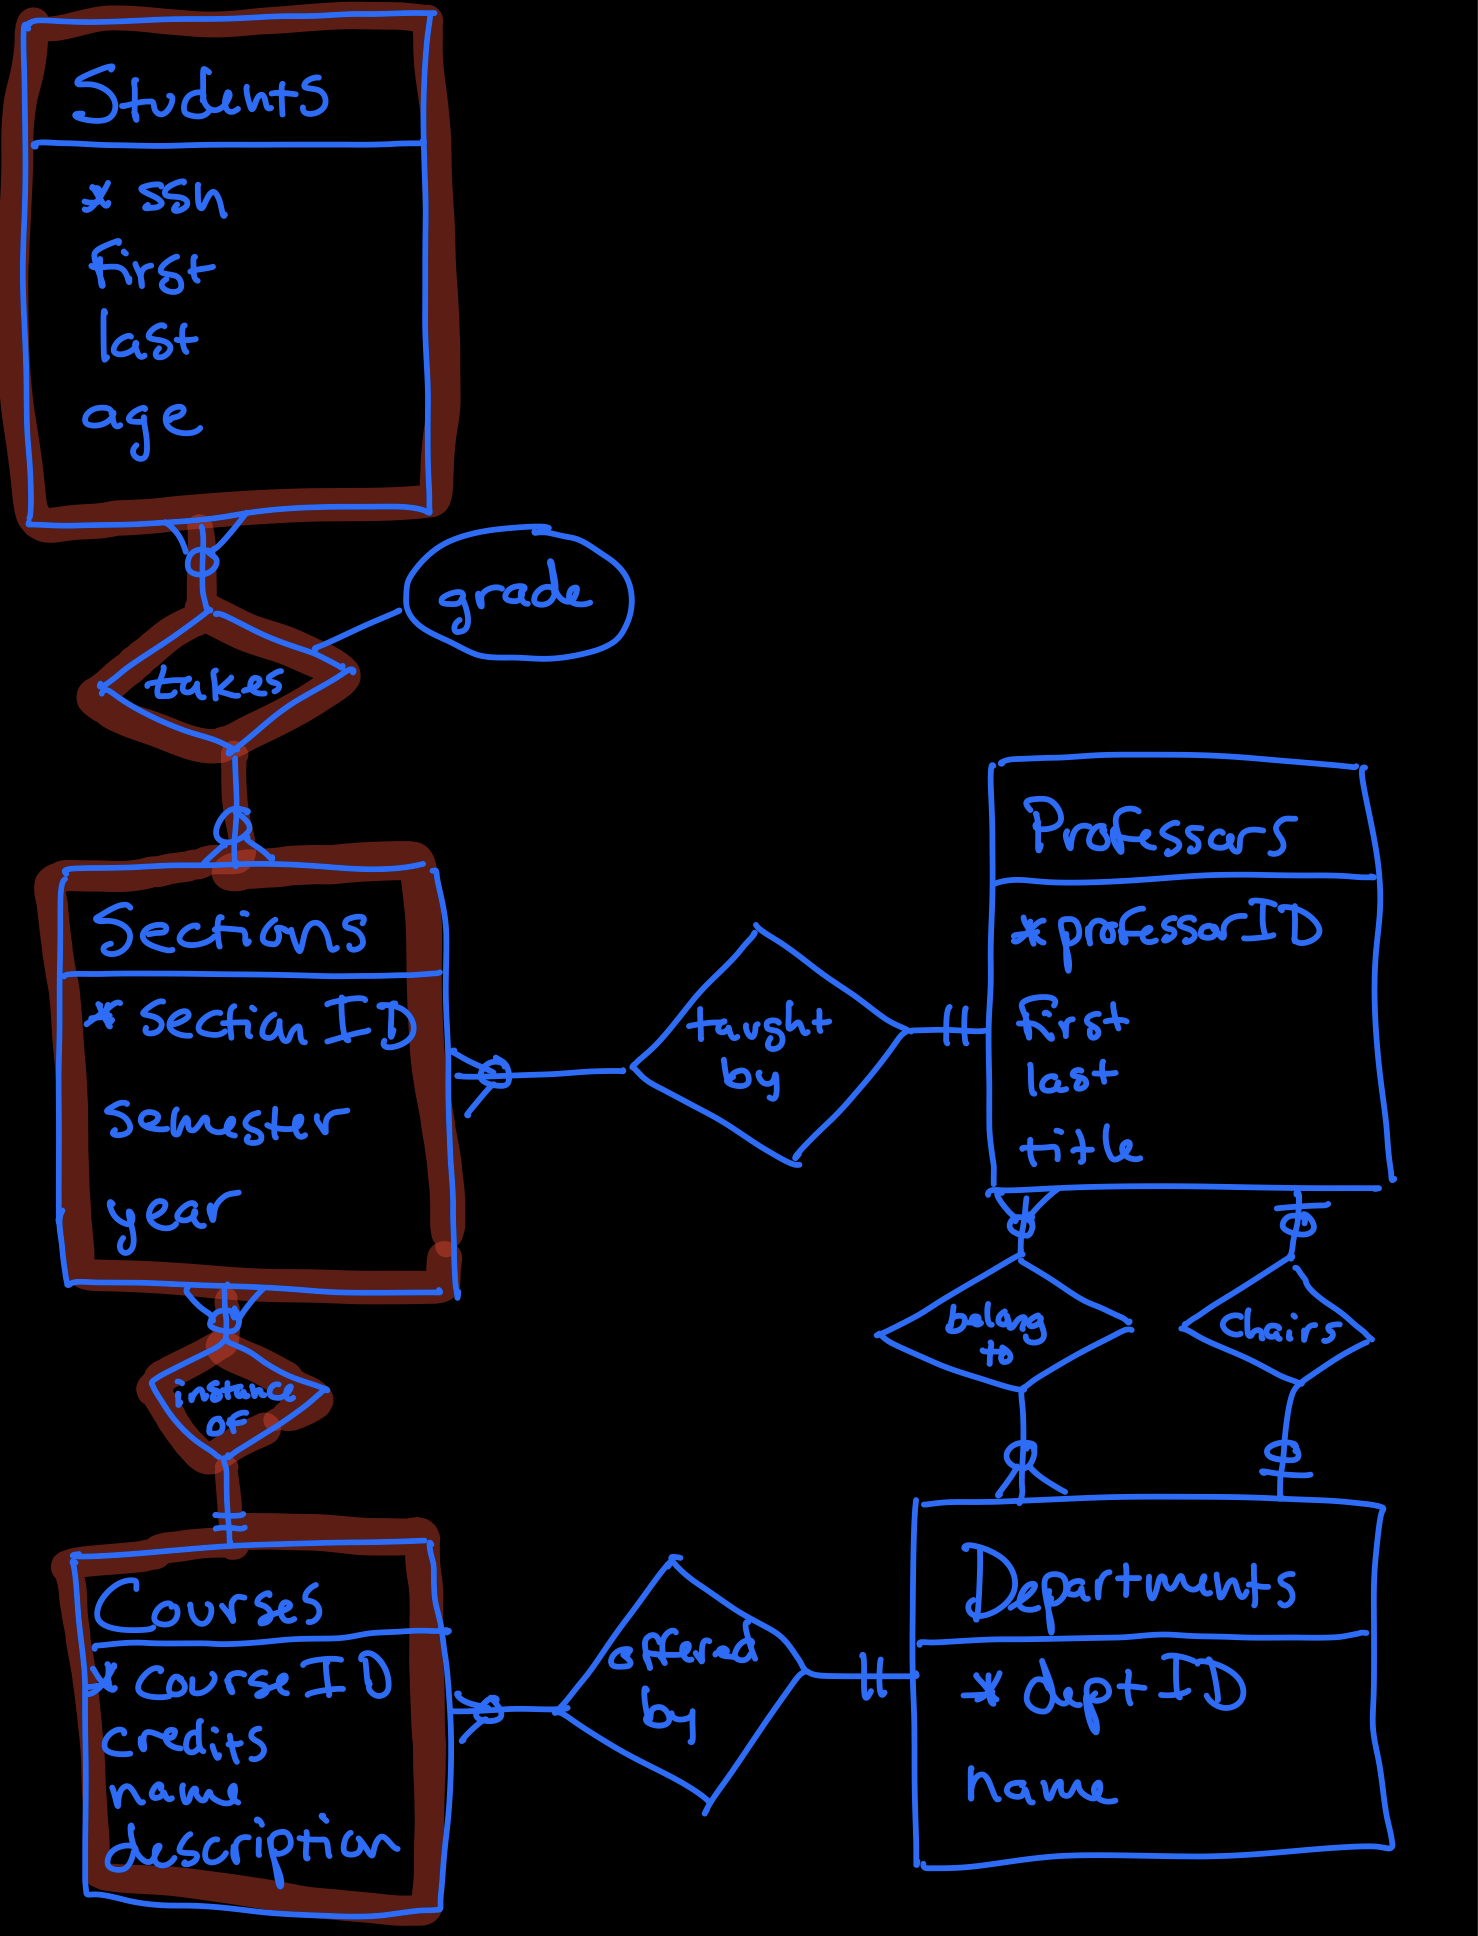 Students
* ssn
first
last
age
grade
takes
Sections
* section ID
semester
year
taught
by
Professors
* professorID
first
last
title
instance
of
belong
to
chairs
Courses
* courseID
credits
name
description
offered
by
Departments
* deptID
name